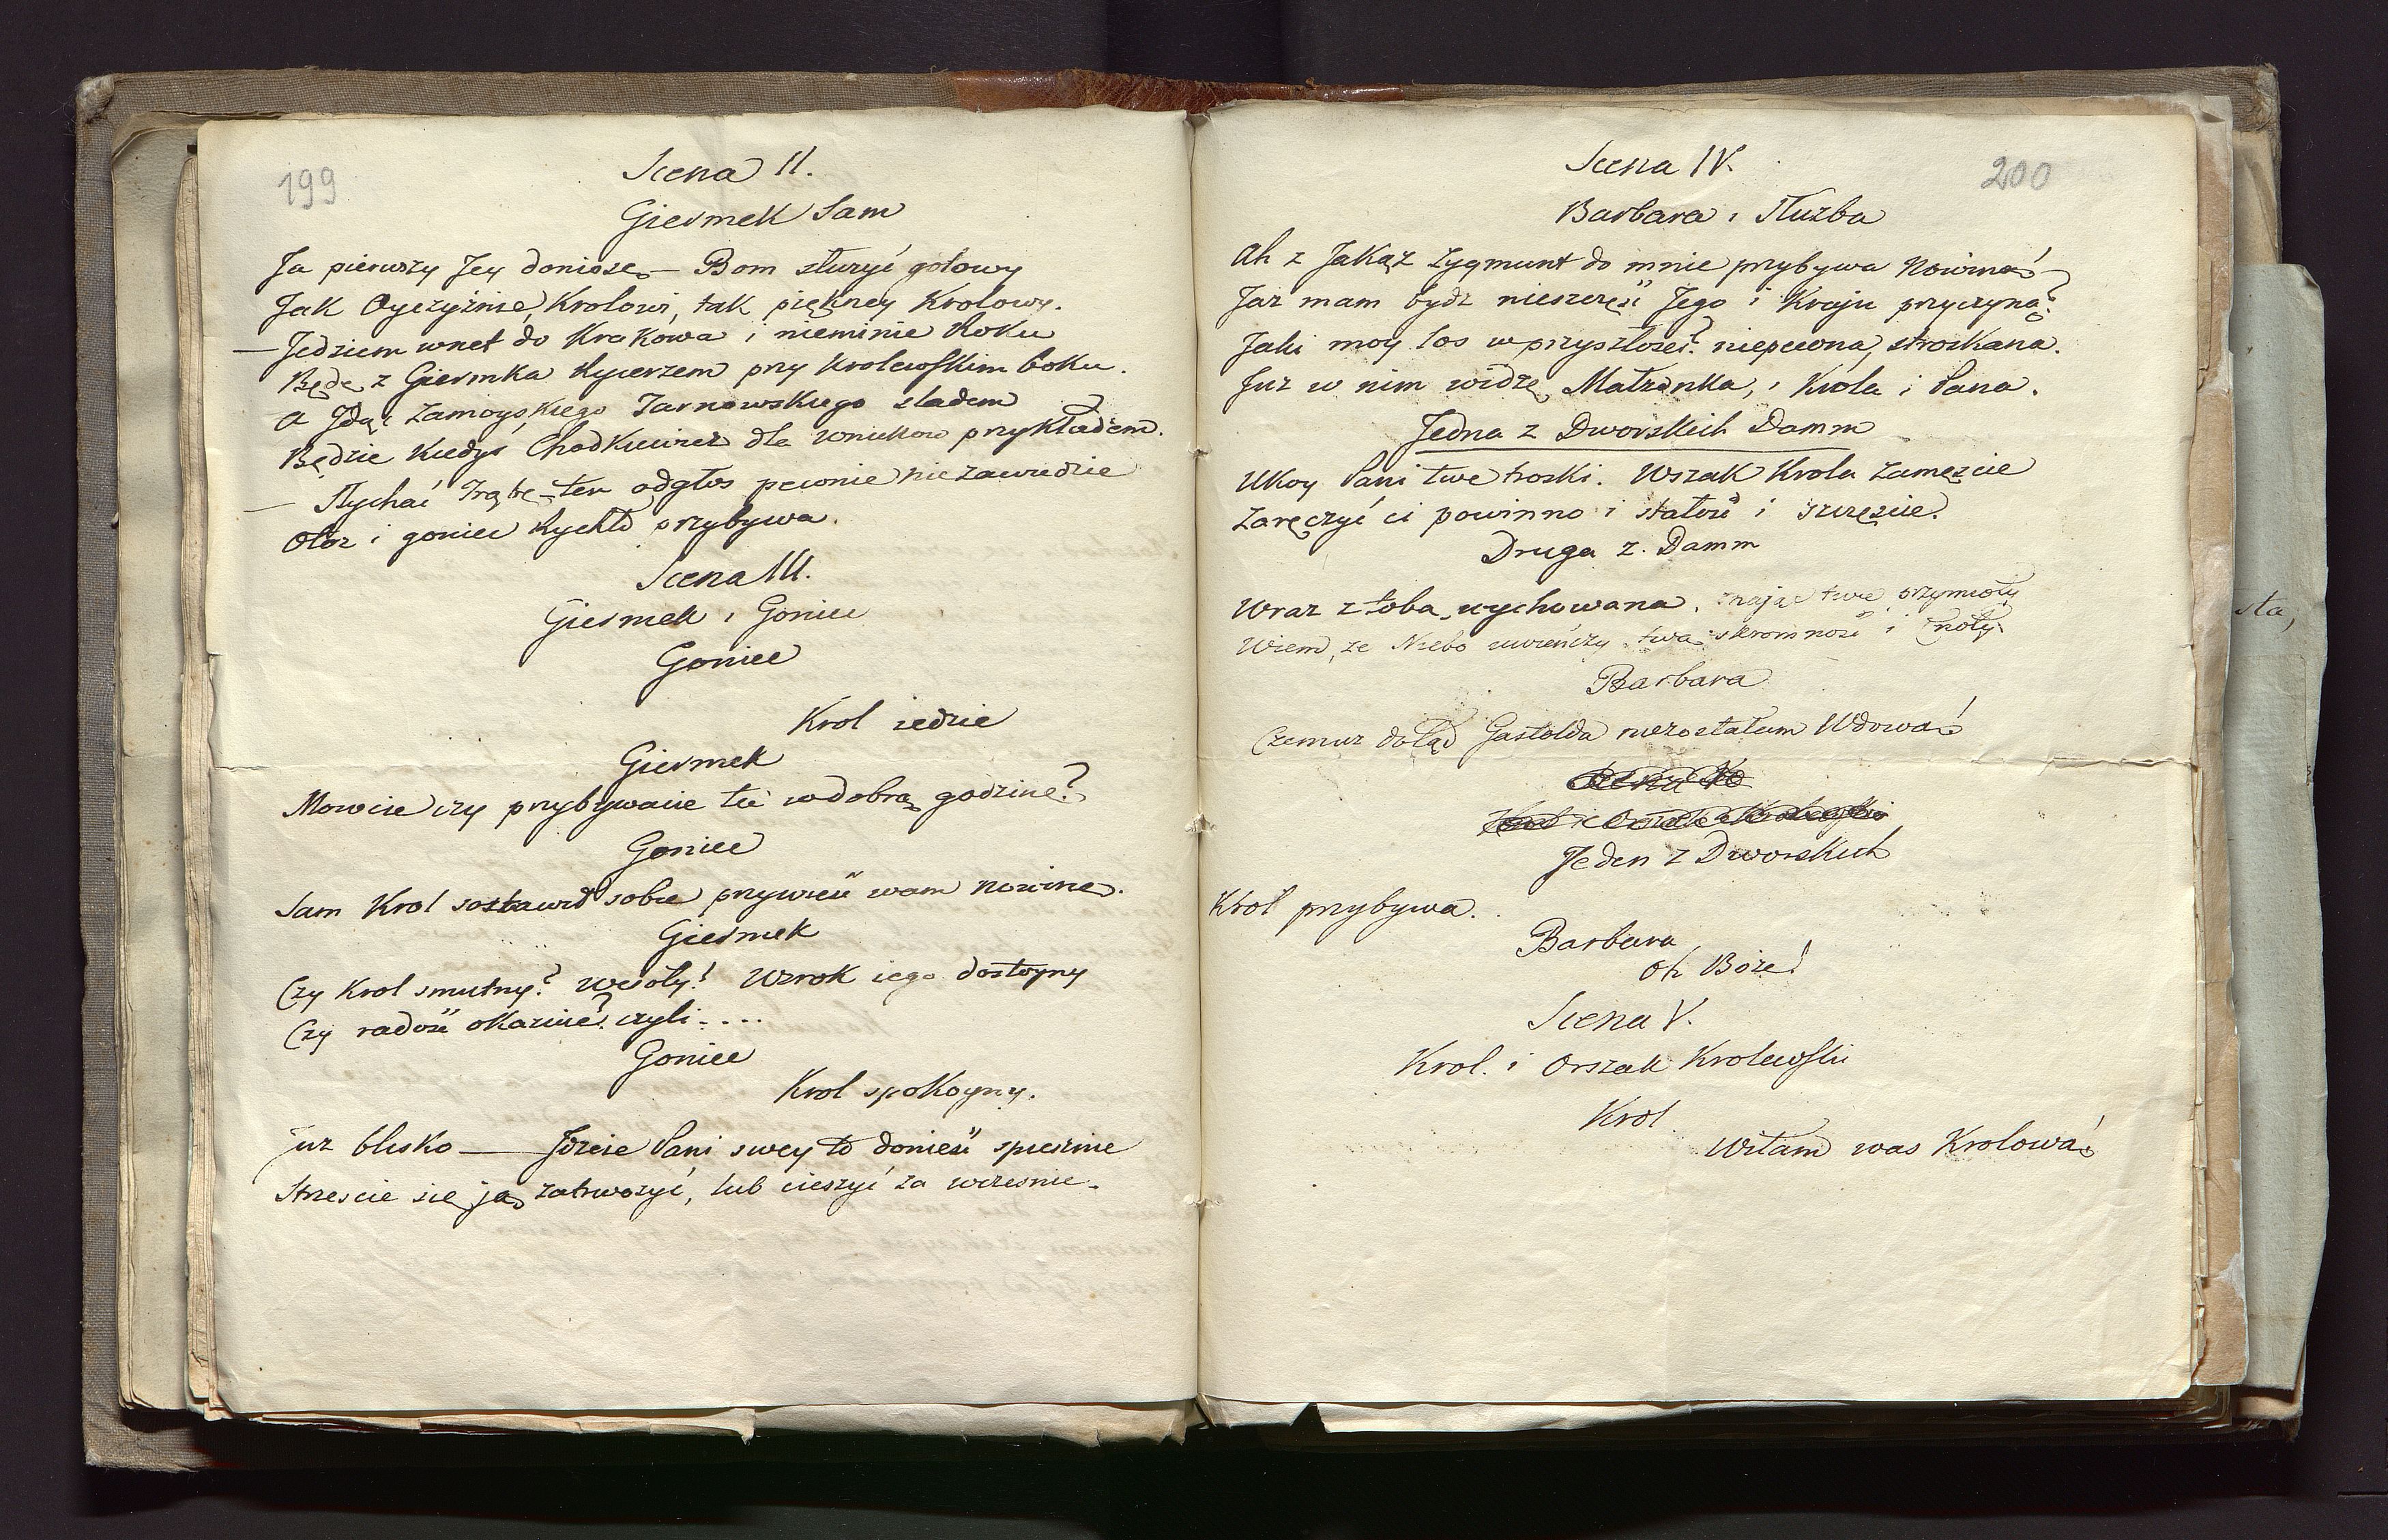 199
Scena II.
Giermek Sam
Ja pierwszy Jey doniosę — Bom służyć gotowy
Jak Oyczyźnie, Krolowi, tak piękney Krolowy.
— Jedziem wnet do Krakowa i nieminie Roku
Będę z Giermka Rycerzem przy Krolewskim boku.
A Idąc Zamoyskiego Tarnowskiego sladem
Będzie kiedyś Chodkiewicz dla wnukow przykładem.
— Słychać Trąbę — ten odgłos pewnie nie zawiedzie
Otoz i goniec Rychło przybywa.
Scena III.
Giermek i Goniec
Goniec
Krol iedzie
Giermek
Mowcie czy przybywacie tu w dobrą godzinę?
Goniec
Sam Krol zostawił sobie przywieść wam nowinę.
Giermek
Czy Krol smutny? Wesoły? Wzrok iego dostoyny
Czy radość okazuie? czyli....
Goniec
Krol spokoyny.
Juz blisko — Idzcie Pani swey to donieść spiesznie
Strzescie się ją zatrwozyć, lub cieszyć za wczesnie.
200
Scena IV.
Barbara i Służba
Ah z Jakąz Zygmunt do mnie przybywa Nowiną!
Jaz mam bydz nieszczęść Jego i Kraju przyczyną?
Jaki moy los w przyszłości? niepewna, stroskana.
Juz w nim widzę Małzonka, i Króla i Pana.
Jedna z Dworskich Damm
Ukoy Pani twe troski. Wszak Krola Zamęzcie
Zaręczyć ci powinno i stałość i szczęście.
Druga z. Damm
Wraz z tobą wychowana, znając twe przymioty
Wiem, ze Niebo uwieńczy twą skromność i Cnoty.
Barbara
Czemuz dotąd Gastolda niezostałam Wdową!
Jeden z Dworskich
Krol przybywa.
Barbara
Oh Boże!
Scena V.
Krol. i Orszak Krolewski
Krol.
Witam was Krolową!
sta,